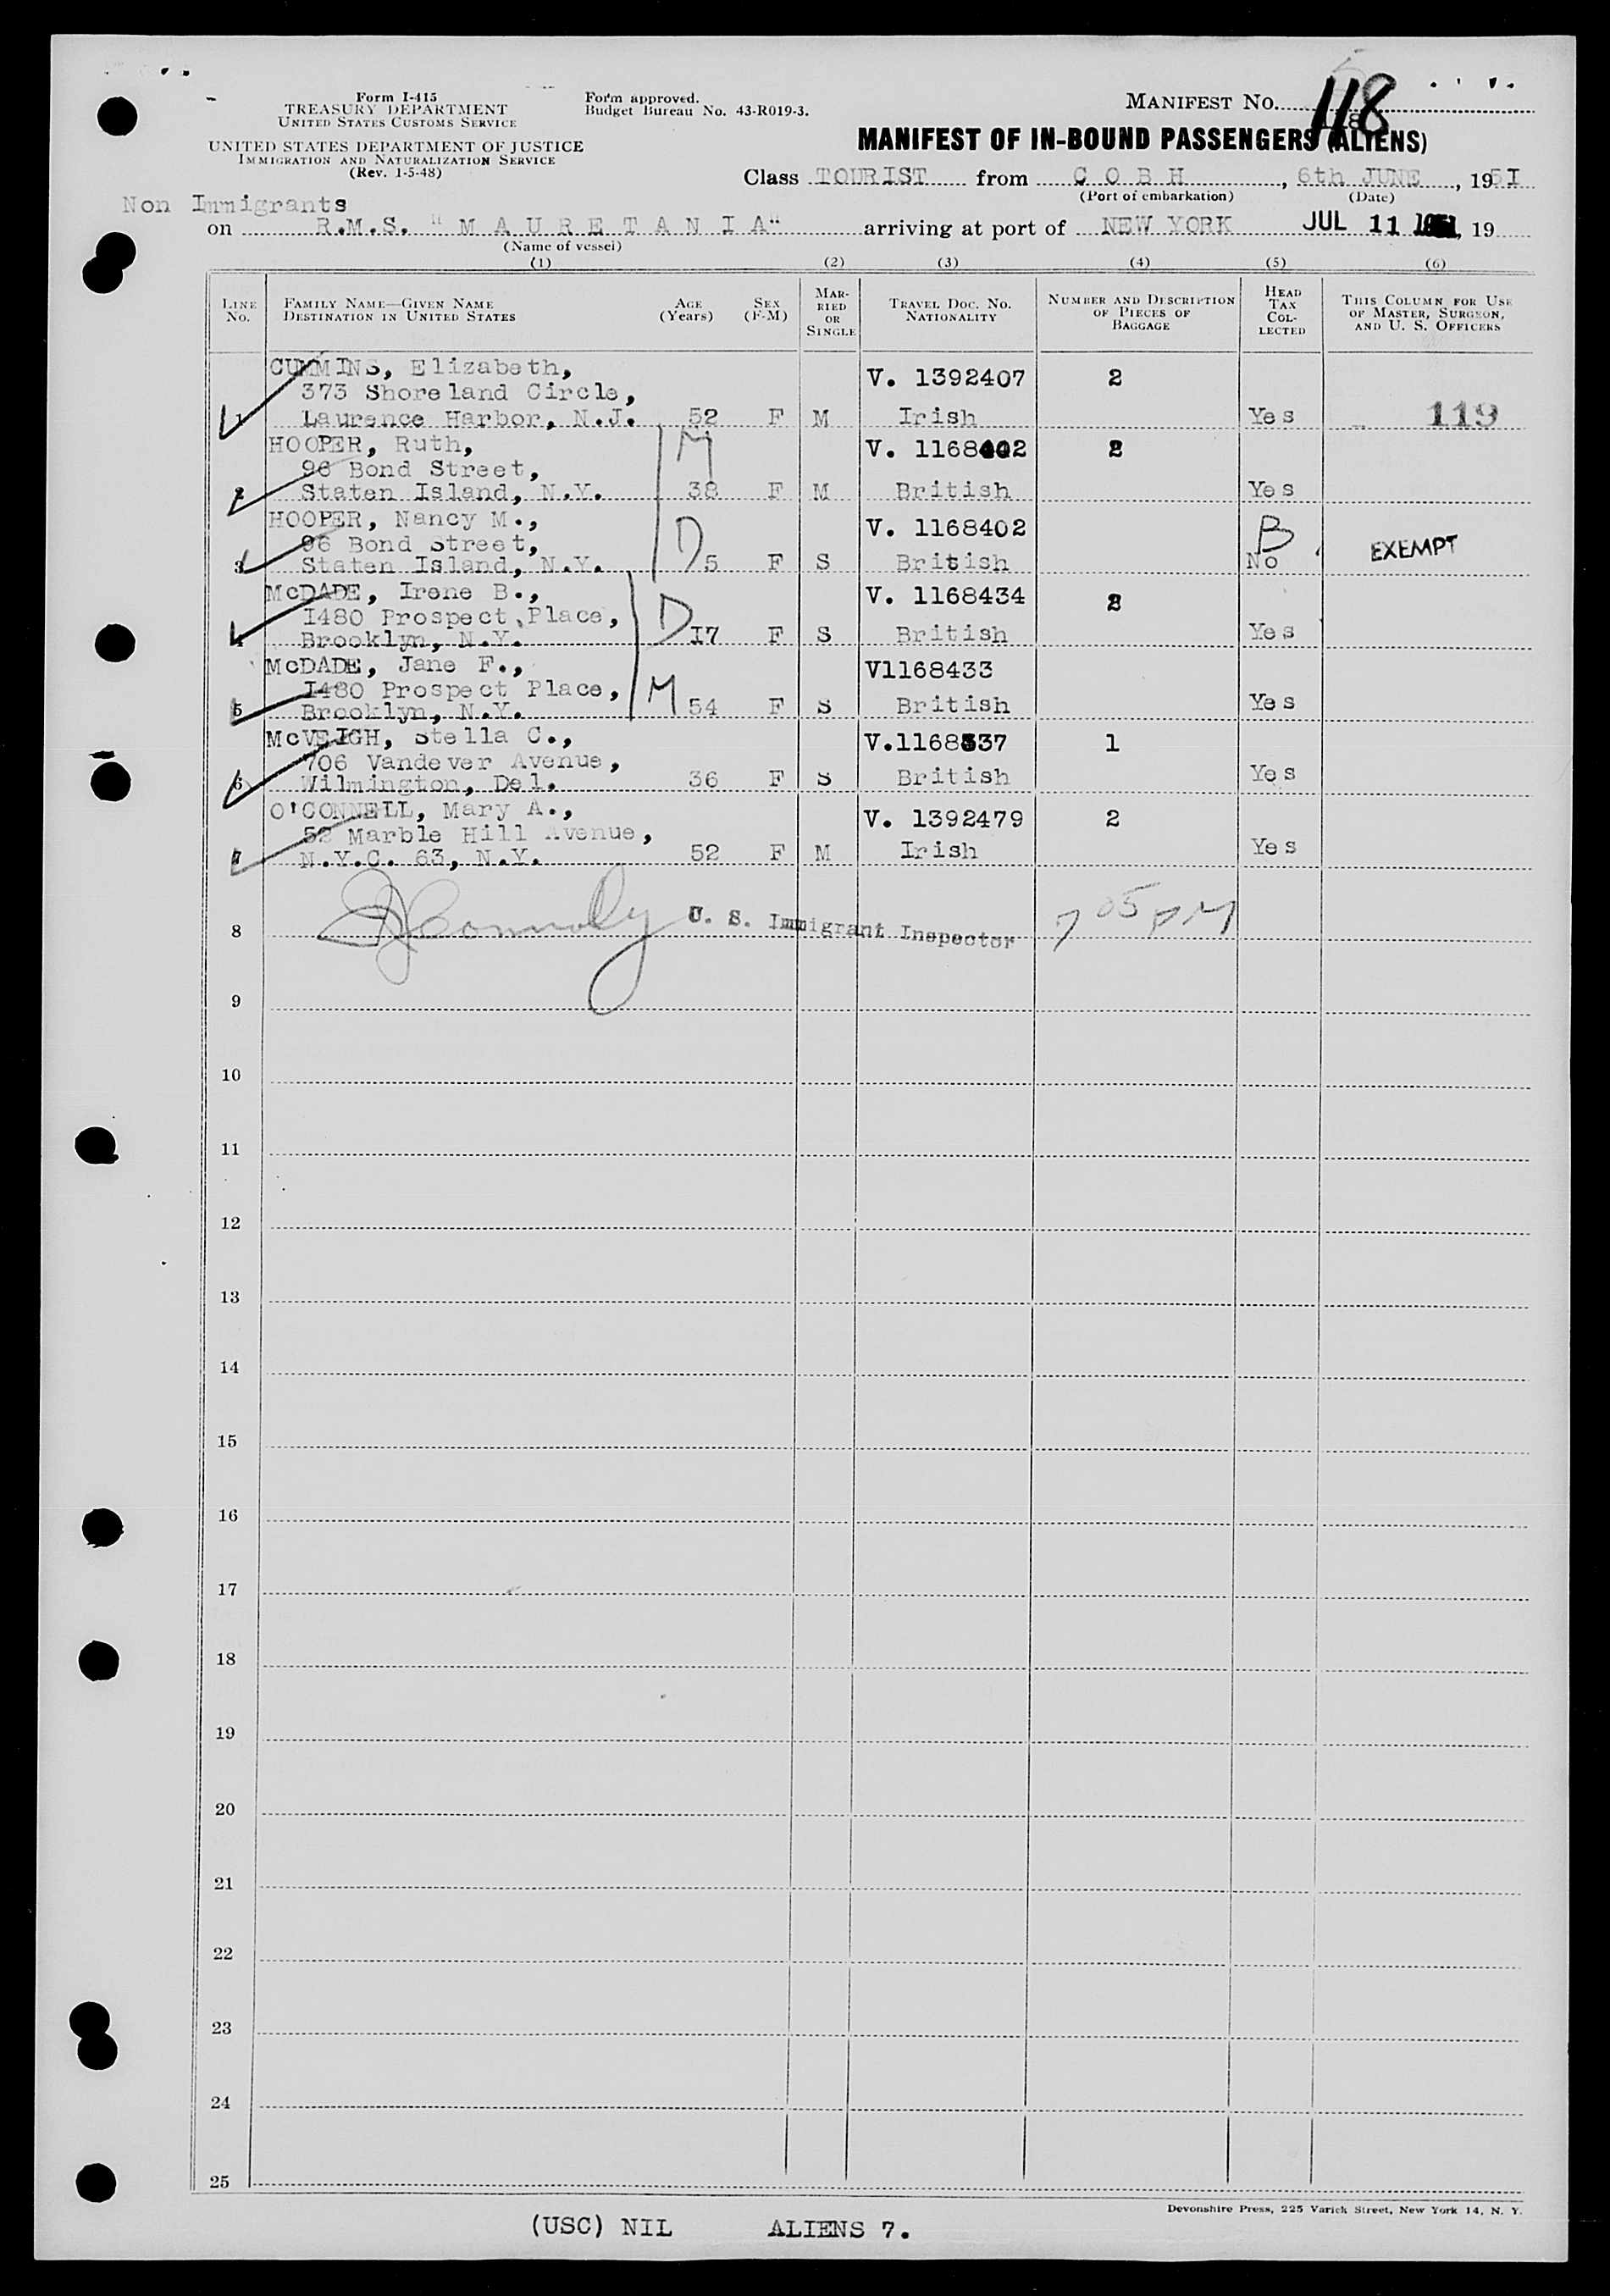 Form I-415
TREASURY DEPARTMENT
UNITED STATES CUSTOMS SERVICE
UNITED STATES DEPARTMENT OF JUSTICE
IMMIGRATION AND NATURALIZATION SERVICE
(Rev. 1-5-48)
Form approved.
Budget Bureau No. 43-R019-3.
MANIFEST NO. 118
MANIFEST OF IN-BOUND PASSENGERS (ALIENS)
Class TOURIST from C O B H, 6th JUNE, 195I
(Port of embarkation) (Date)
Non Immigrants
on R.M.S. "M A U R E T A N I A" arriving at port of NEW YORK JUL 11 1951, 19
(Name of vessel)
(1) (2) (3) (4) (5) (6)
LINE NO. FAMILY NAME—GIVEN NAME DESTINATION IN UNITED STATES AGE (Years) SEX (F-M) MARRIED OR SINGLE TRAVEL DOC. NO. NATIONALITY NUMBER AND DESCRIPTION OF PIECES OF BAGGAGE HEAD TAX COLLECTED THIS COLUMN FOR USE OF MASTER, SURGEON, AND U. S. OFFICERS
CUMMINS, Elizabeth, V. 1392407 2
373 Shoreland Circle,
1 Laurence Harbor, N.J. 52 F M Irish Yes 119
HOOPER, Ruth, M V. 1168402 2
96 Bond Street,
2 Staten Island, N.Y. 38 F M British Yes
HOOPER, Nancy M., V. 1168402 B
96 Bond Street, D EXEMPT
3 Staten Island, N.Y. 5 F S British No
McDADE, Irene B., V. 1168434 2
I480 Prospect Place, D
4 Brooklyn, N.Y. I7 F S British Yes
McDADE, Jane F., V1168433
I480 Prospect Place, M
5 Brooklyn, N.Y. 54 F S British Yes
McVEIGH, Stella C., V.1168337 1
706 Vandever Avenue,
6 Wilmington, Del. 36 F S British Yes
O'CONNELL, Mary A., V. 1392479 2
52 Marble Hill Avenue,
7 N.Y.C. 63, N.Y. 52 F M Irish Yes
8 Connoly U. S. Immigrant Inspector 7 05 PM
9
10
11
12
13
14
15
16
17
18
19
20
21
22
23
24
25
Devonshire Press, 225 Varick Street, New York 14, N. Y.
(USC) NIL ALIENS 7.